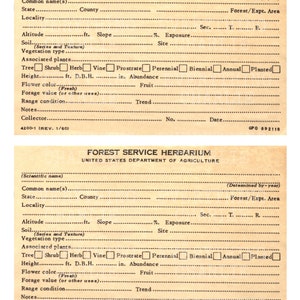 Common name(s)
State County Forest/Expt. Area
Locality
Sec. T. R.
Altitude ft. Slope % Exposure
Soil Site
(Series and Texture)
Vegetation type
Associated plants
Tree Shrub Herb Vine Prostrate Perennial Biennial Annual Planted
Height ft. D.B.H. in. Abundance
Flower color Fruit
(Fresh)
Forage value (or other uses)
Range condition Trend
Notes
Collector No. Date
4200-1 (REV. 1/60) GPO 892118
FOREST SERVICE HERBARIUM
UNITED STATES DEPARTMENT OF AGRICULTURE
(Scientific name)
Common name(s) (Determined by-year)
State County Forest/Expt. Area
Locality
Sec. T. R.
Altitude ft. Slope % Exposure
Soil Site
(Series and Texture)
Vegetation type
Associated plants
Tree Shrub Herb Vine Prostrate Perennial Biennial Annual Planted
Height ft. D.B.H. in. Abundance
Flower color Fruit
(Fresh)
Forage value (or other uses)
Range condition Trend
Notes